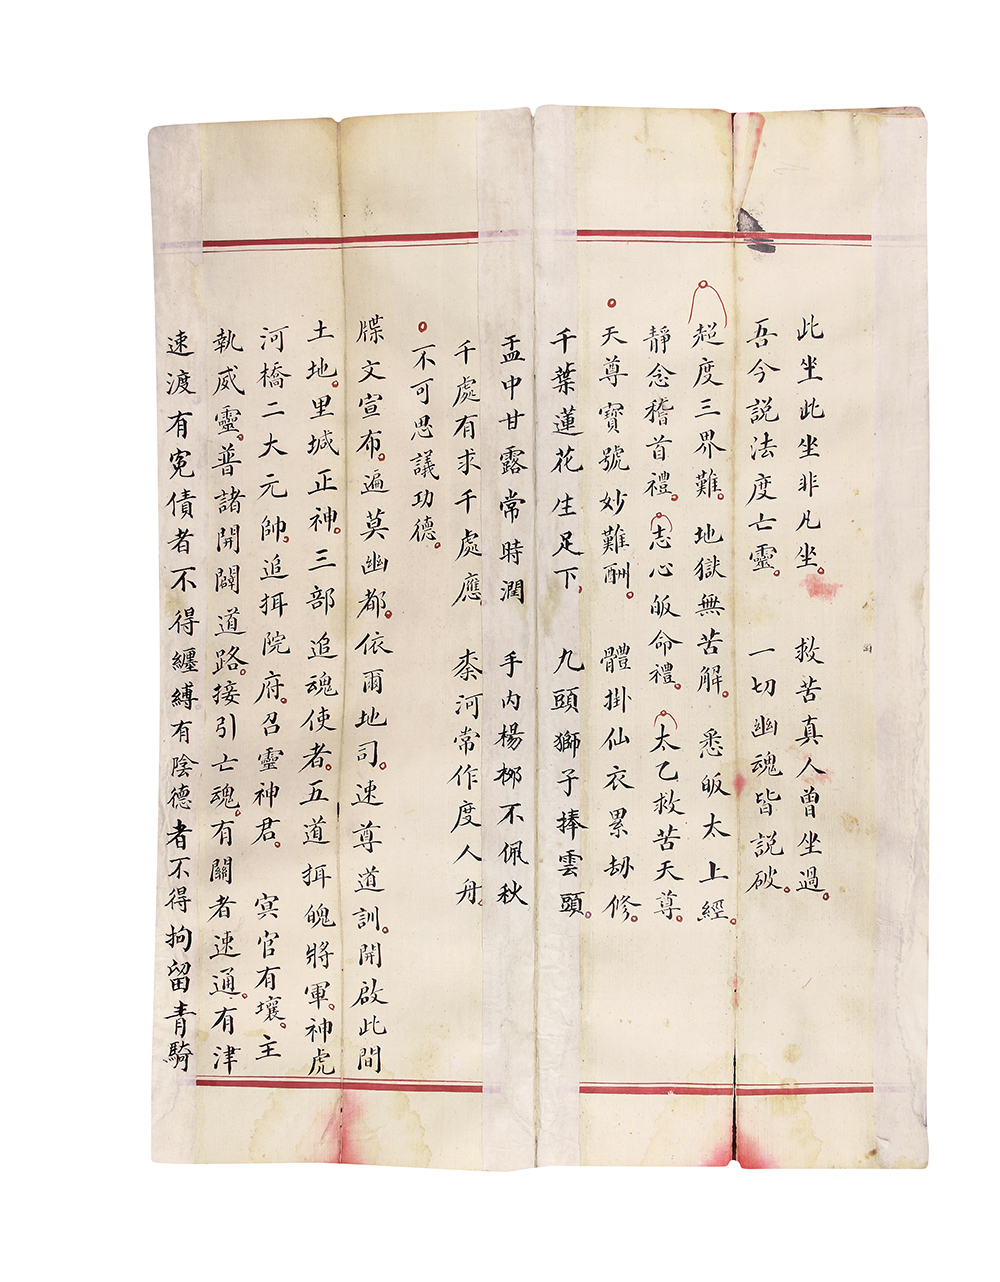 此坐此坐非凡坐。 救苦真人曾坐過。
吾今説法度亡靈。 一切幽魂皆説破。
超度三界難。地獄無苦解。悉皈太上經。
靜念稽首禮。志心皈命禮。太乙救苦天尊。
天尊寳號妙難酬。 體掛仙衣累劫修。
千葉蓮花生足下、 九頭獅子捧雲頭。
盂中甘露常時潤 手内楊栁不佩秋
千處有求千處應。 柰河常作度人舟。
不可思議功德。
牒文宣布。遍莫幽都。依爾地司。速尊道訓。開啟此間
土地。里堿正神。三部追魂使者。五道挕魄將軍。神虎
河橋二大元帥。追挕院府。召靈神君。 㝠官有壤。主
執威靈。普諸開闢道路。接引亡魂。有關者速通。有津
速渡有寃債者不得纏縛有陰德者不得拘留青騎